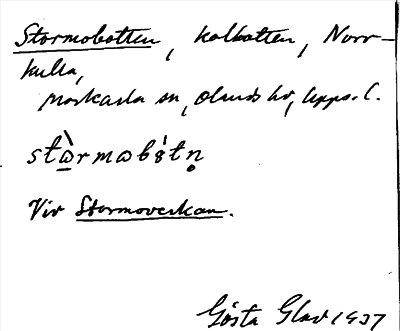 Stormobotten, kolbotten, Norr-
kulla,
Morkarla sn, Olands hd, Upps. l.
stὰrmωbòtn̥
Vid Stormoveskan.
Gösta Glad 1937